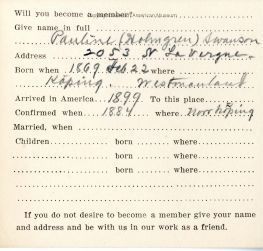 Will you become a member
Give name in full
Pauline (Holmgren) Swanson
Address 2053 N Lavergne
Born when 1869 Feb 22 where
Köping Westmanland
Arrived in America 1899 To this place
Confirmed when 1884 where Norrköping
Married, when
Children born where
born where
born where
born where
If you do not desire to become a member give your name
and address and be with us in our work as a friend.